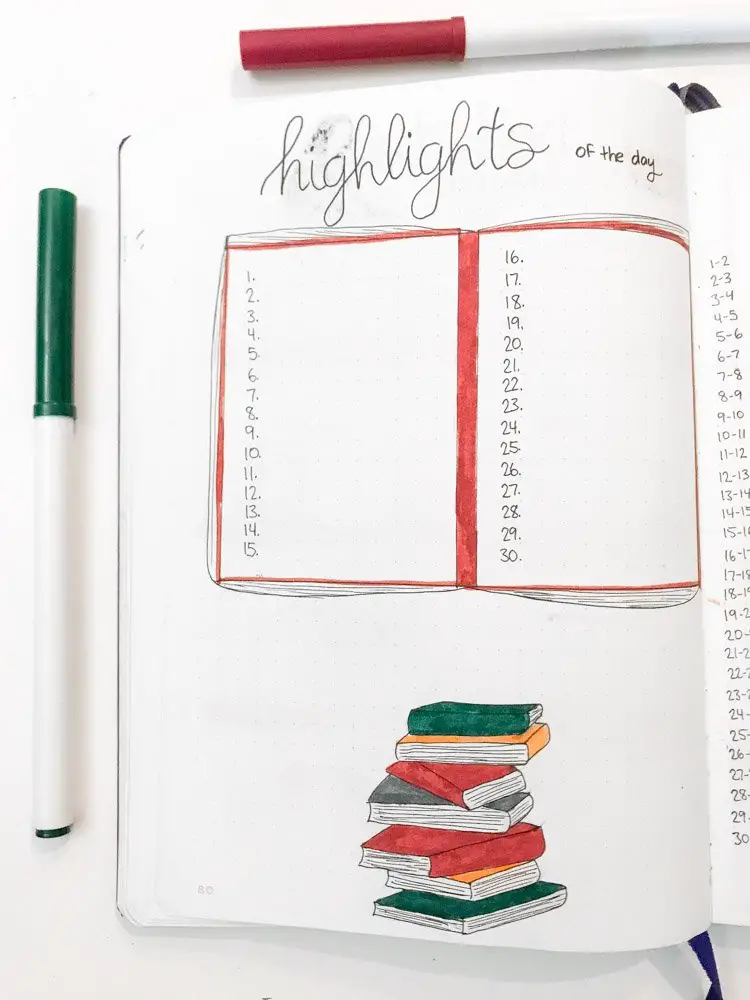 highlights
of the day
1.
2.
3.
4.
5.
6.
7.
8.
9.
10.
11.
12.
13.
14.
15.
16.
17.
18.
19.
20.
21.
22.
23.
24.
25.
26.
27.
28.
29.
30.
80
1-2
2-3
3-4
4-5
5-6
6-7
7-8
8-9
9-10
10-11
11-12
12-13
13-14
14-15
15-16
16-17
17-18
18-19
19-2
20-
21-2
22-2
23-2
24-
25-
26-
27-
28-
29-
30